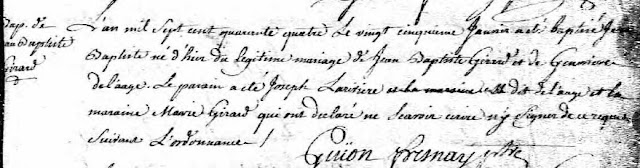 Bap. de
Jean Baptiste
Girard
L'an mil sept cent quarante quatre Le vingt cinquieme Janvier a eté baptisé Jean
Baptiste né d'hier du legitime mariage de Jean Baptiste Girard et de Genevieve
delaage. Le parain a eté Joseph Lariviere et la maraine dit delaage et la
maraine Marie Girard qui ont declaré ne scavoir ecrire ny signer de ce requis
suivant L'ordonnance
Guïon fresnay ptre